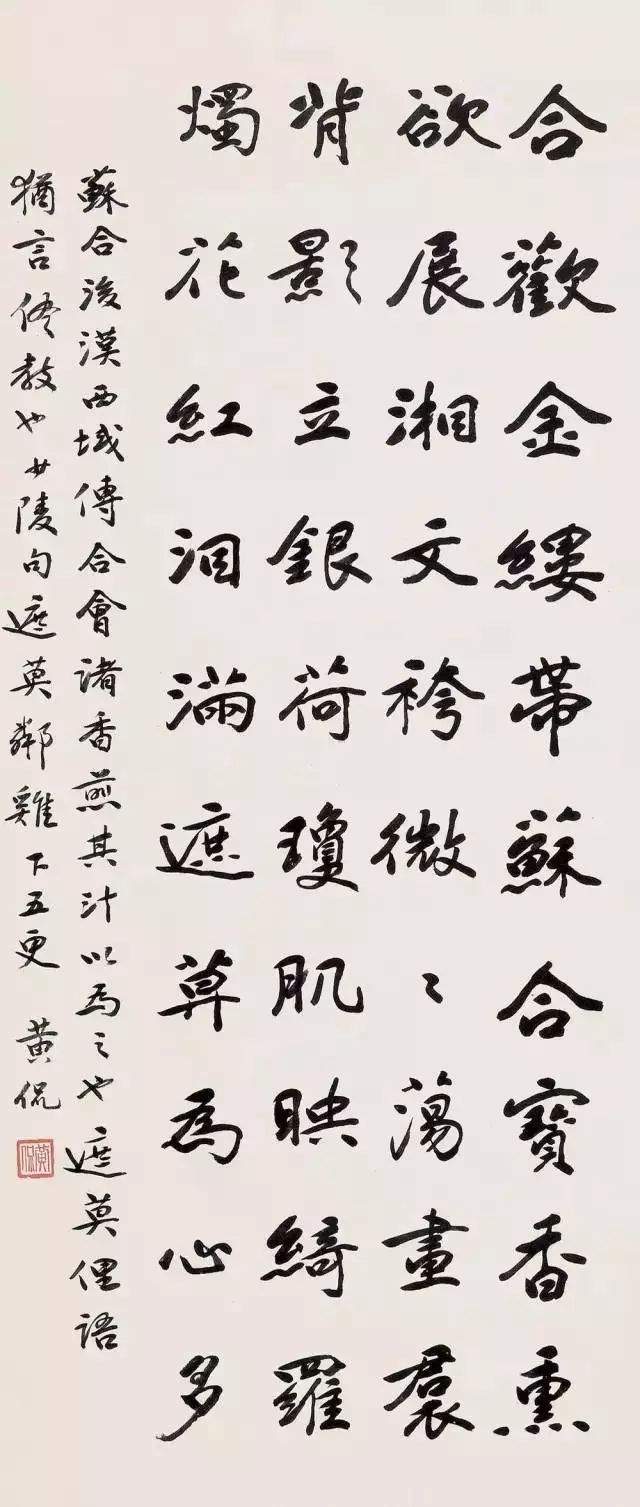 合歡金縷帶蘇合寶香熏
欲展湘文袴微〻蕩畫裠
背影立銀荷瓊肌映綺羅
燭花紅泪滿遮莫為心多
蘇合後漢西域傳合會諸香煎其汁以為之也遮莫俚語
猶言儘教也少陵句遮莫鄰雞下五更 黃侃
黃侃